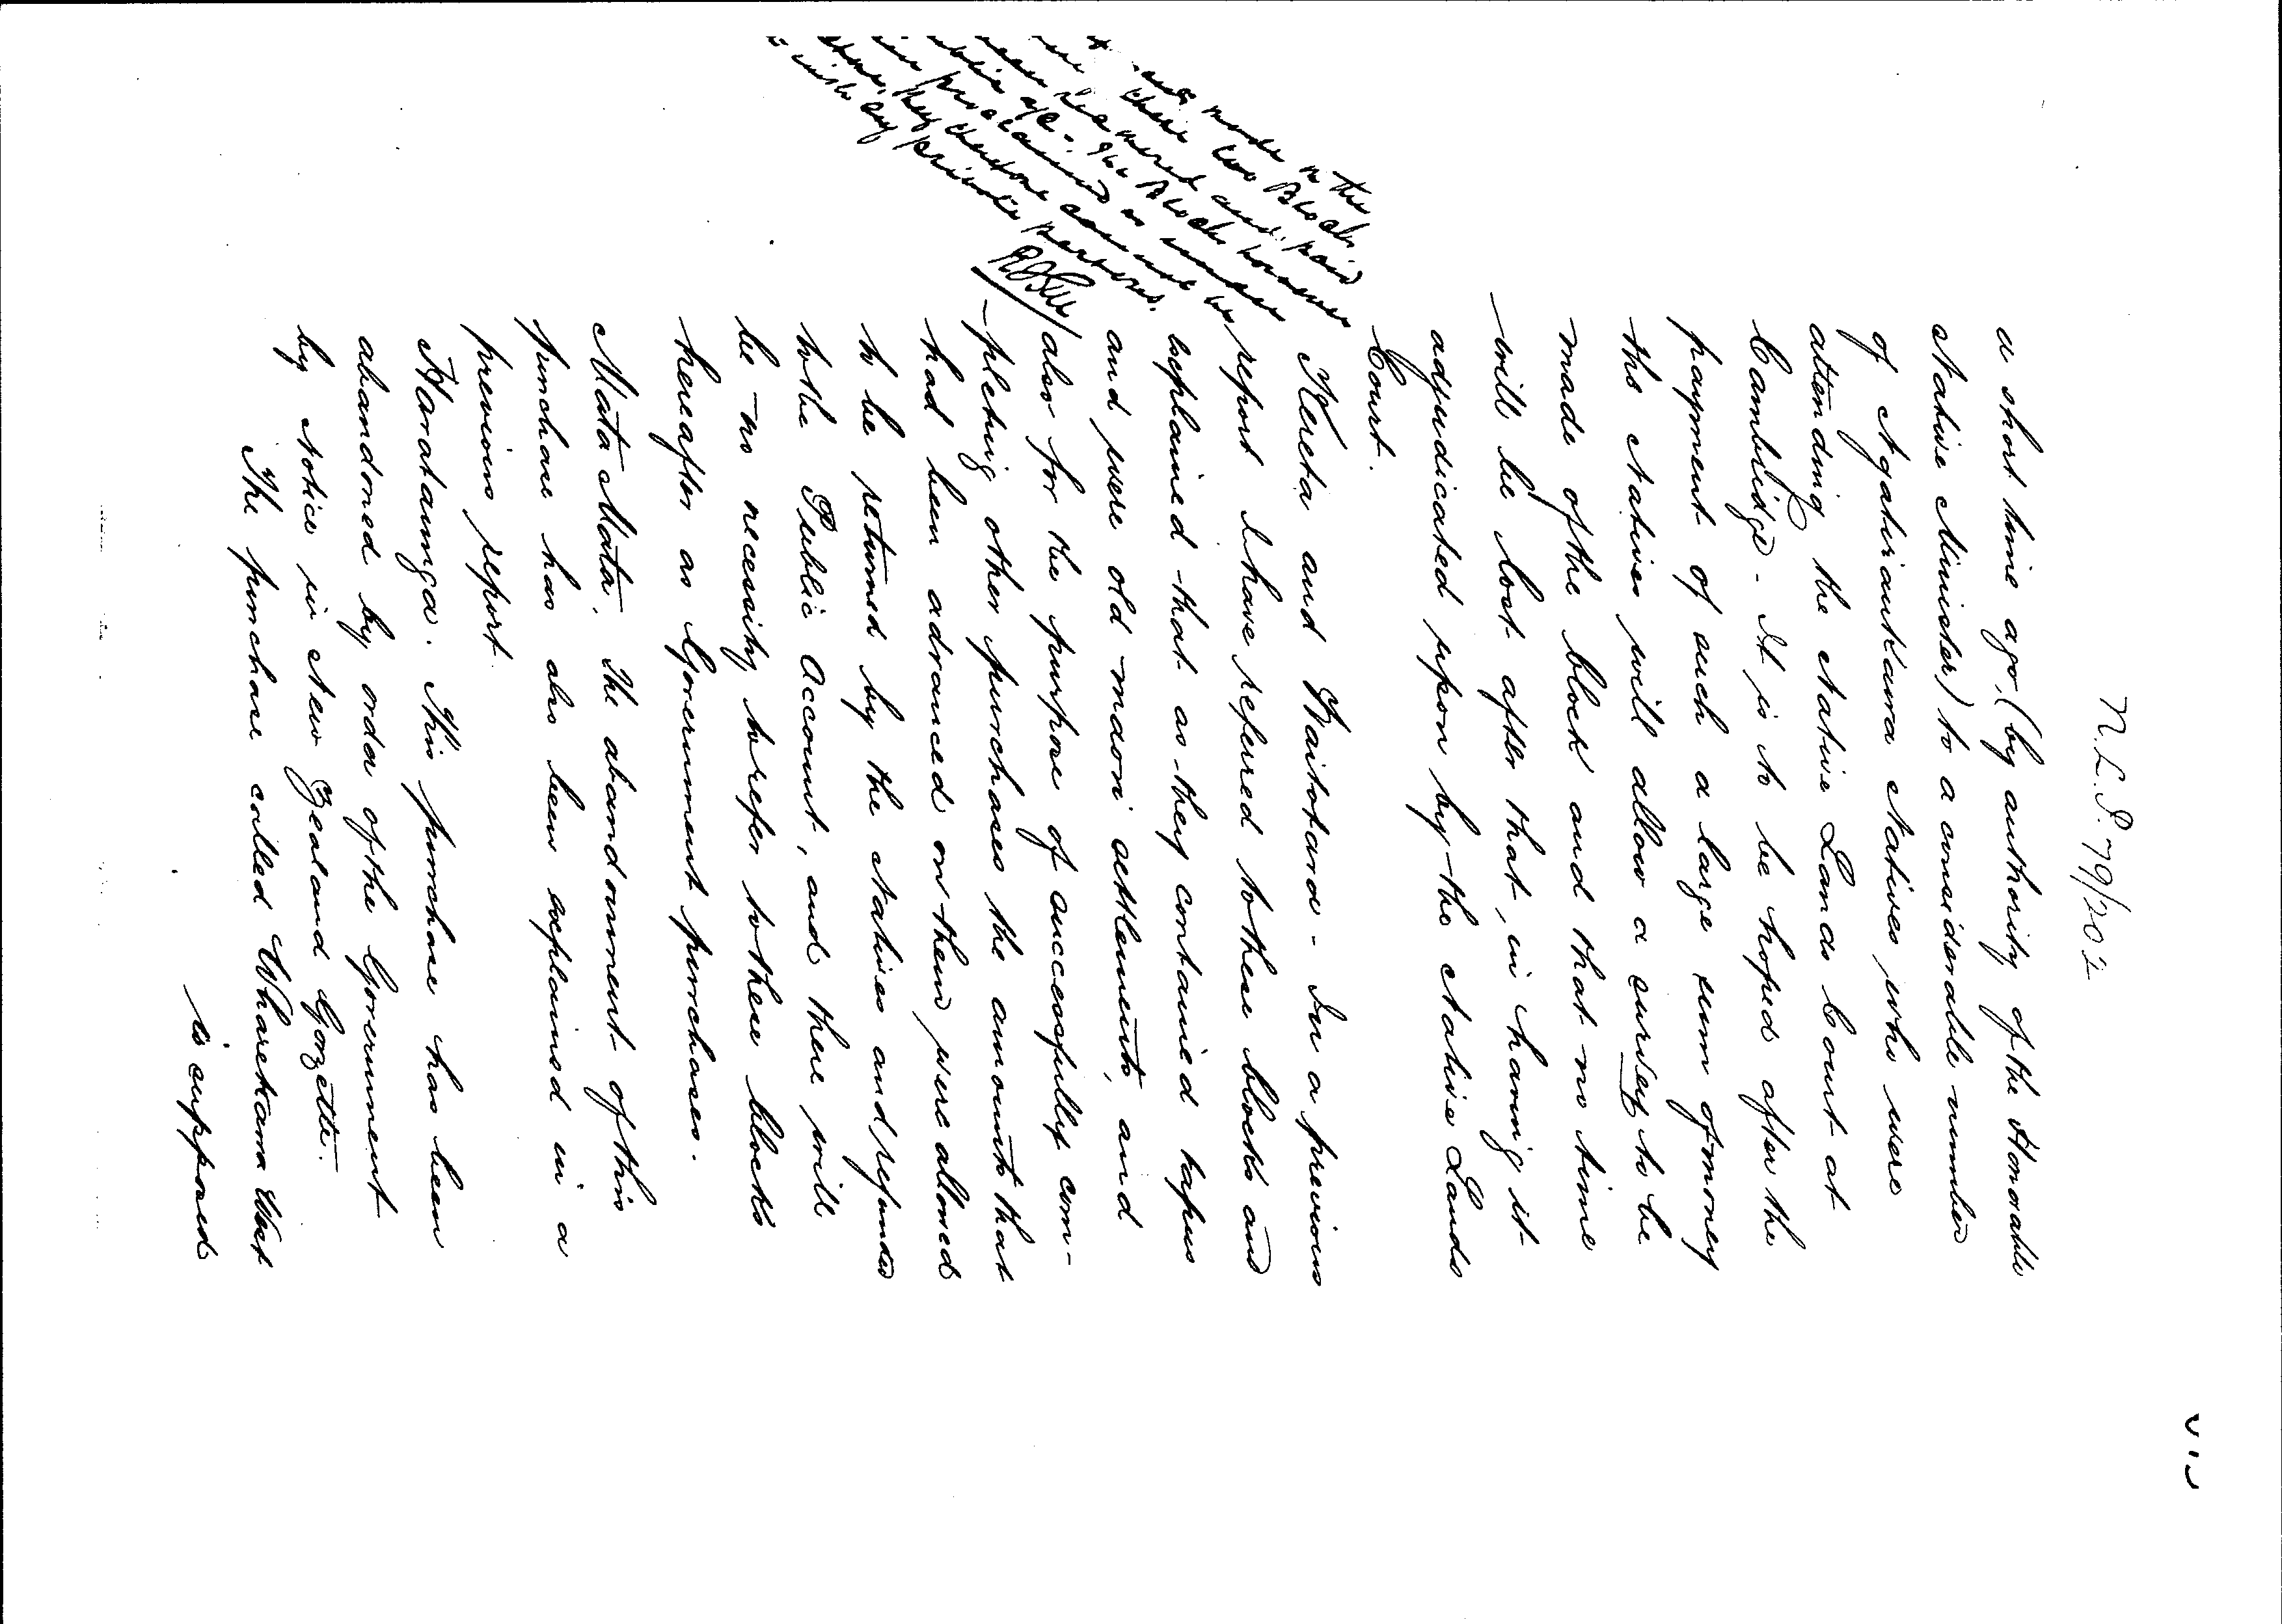 N.L.P. 79/202
a short time ago, (by authority of the Honorable
Native Minister) to a considerable number
of Ngatiraukawa Natives who were
attending the Native Lands Court at
Cambridge - It is to be hoped after the
payment of such a large sum of money
the Natives will allow a survey to be
made of the block and that no time
will be lost after that, in having it
adjudicated upon by the Native Lands
Court.
Kereta and Waitotara - In a previous
report I have referred to these blocks and
explained that as they contained tapus
and were old maori settlements, and
also for the purpose of successfully com-
-pleting other purchases the amounts that
had been advanced on them were allowed
to be returned by the Natives and refunded
to the Public Account, and there will
be no necessity to refer to these blocks
hereafter as Government purchases.
Mata Mata. The abandonment of this
purchase has also been explained in a
previous report.
Harataunga. This purchase has been
abandoned by order of the Government
by Notice in New Zealand Gazette.
The purchase called Wharekawa West
is supposed
made on the
these two Blocks
and paid
Public a/c - The Blocks however
proclaimed as under
they therefore cannot be
with by private parties.